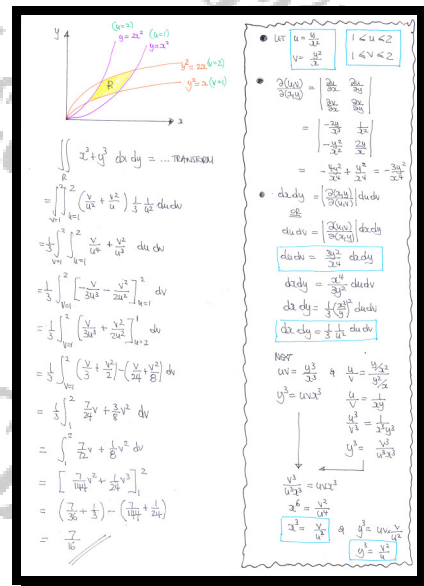 y
(u=2)
y=2x²
(u=1)
y=x²
y²=2x (v=2)
y²=x (v=1)
R
x
∬_R x³+y³ dx dy = ... TRANSFORM
= ∫_{v=1}^{2} ∫_{u=1}^{2} (v/u² + v²/u) 1/3 1/u² du dv
= 1/3 ∫_{v=1}^{2} ∫_{u=1}^{2} v/u⁴ + v²/u³ du dv
= 1/3 ∫_{v=1}^{2} [-v/3u³ - v²/2u²]_{u=1}^{2} dv
= 1/3 ∫_{v=1}^{2} [v/3u³ + v²/2u²]_{u=2}^{1} dv
= 1/3 ∫_{v=1}^{2} (v/3 + v²/2) - (v/24 + v²/8) dv
= 1/3 ∫_{1}^{2} 7/24 v + 3/8 v² dv
= ∫_{1}^{2} 7/72 v + 1/8 v² dv
= [7/144 v² + 1/24 v³]_{1}^{2}
= (7/36 + 1/3) - (7/144 + 1/24)
= 7/16
LET u = y/x² 1≤u≤2
v = y²/x 1≤v≤2
∂(u,v)/∂(x,y) = | ∂u/∂x ∂u/∂y |
| ∂v/∂x ∂v/∂y |
= | -2y/x³ 1/x² |
| -y²/x² 2y/x |
= -4y²/x⁴ + y²/x⁴ = -3y²/x⁴
dxdy = |∂(x,y)/∂(u,v)| du dv
OR
du dv = |∂(u,v)/∂(x,y)| dx dy
du dv = 3y²/x⁴ dx dy
dxdy = x⁴/3y² du dv
dx dy = 1/3 (x²/y)² du dv
dx dy = 1/3 1/u² du dv
NEXT
uv = y³/x³ & u/v = y/x² / y²/x
y³ = uvx³
u/v = 1/xy
u³/v³ = 1/x³y³
y³ = v³/u³x³
v³/u³x³ = uvx³
x⁶ = v²/u⁴
x³ = v/u² & y³ = uv·v/u²
y³ = v²/u